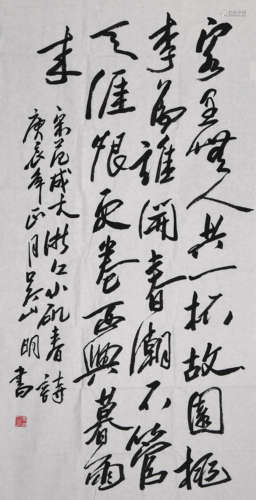 客里無人共一杯故園桃
李為誰開春潮不管
天涯恨更卷西興暮雨
来
宋范成大浙江小矶春詩
庚辰年正月吳山明書